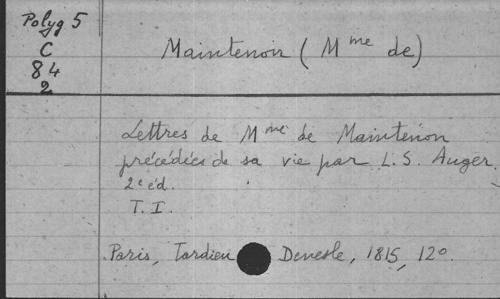 Polyg 5
C
84
2
Maintenon (Mme de)
Lettres de Mme de Maintenon
précédées de sa vie par L. S. Auger.
2e éd.
T. I.
Paris, Tardieu Denesle, 1815, 12o.